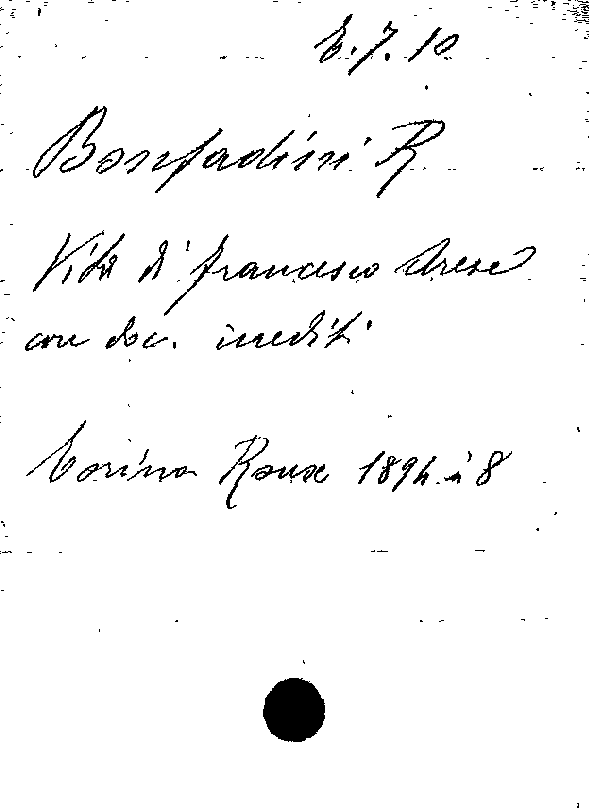 E.7.10
Bonfadini R
Vita di Francesco Arese
con doc. inediti
Torino Roux 1894 in 8